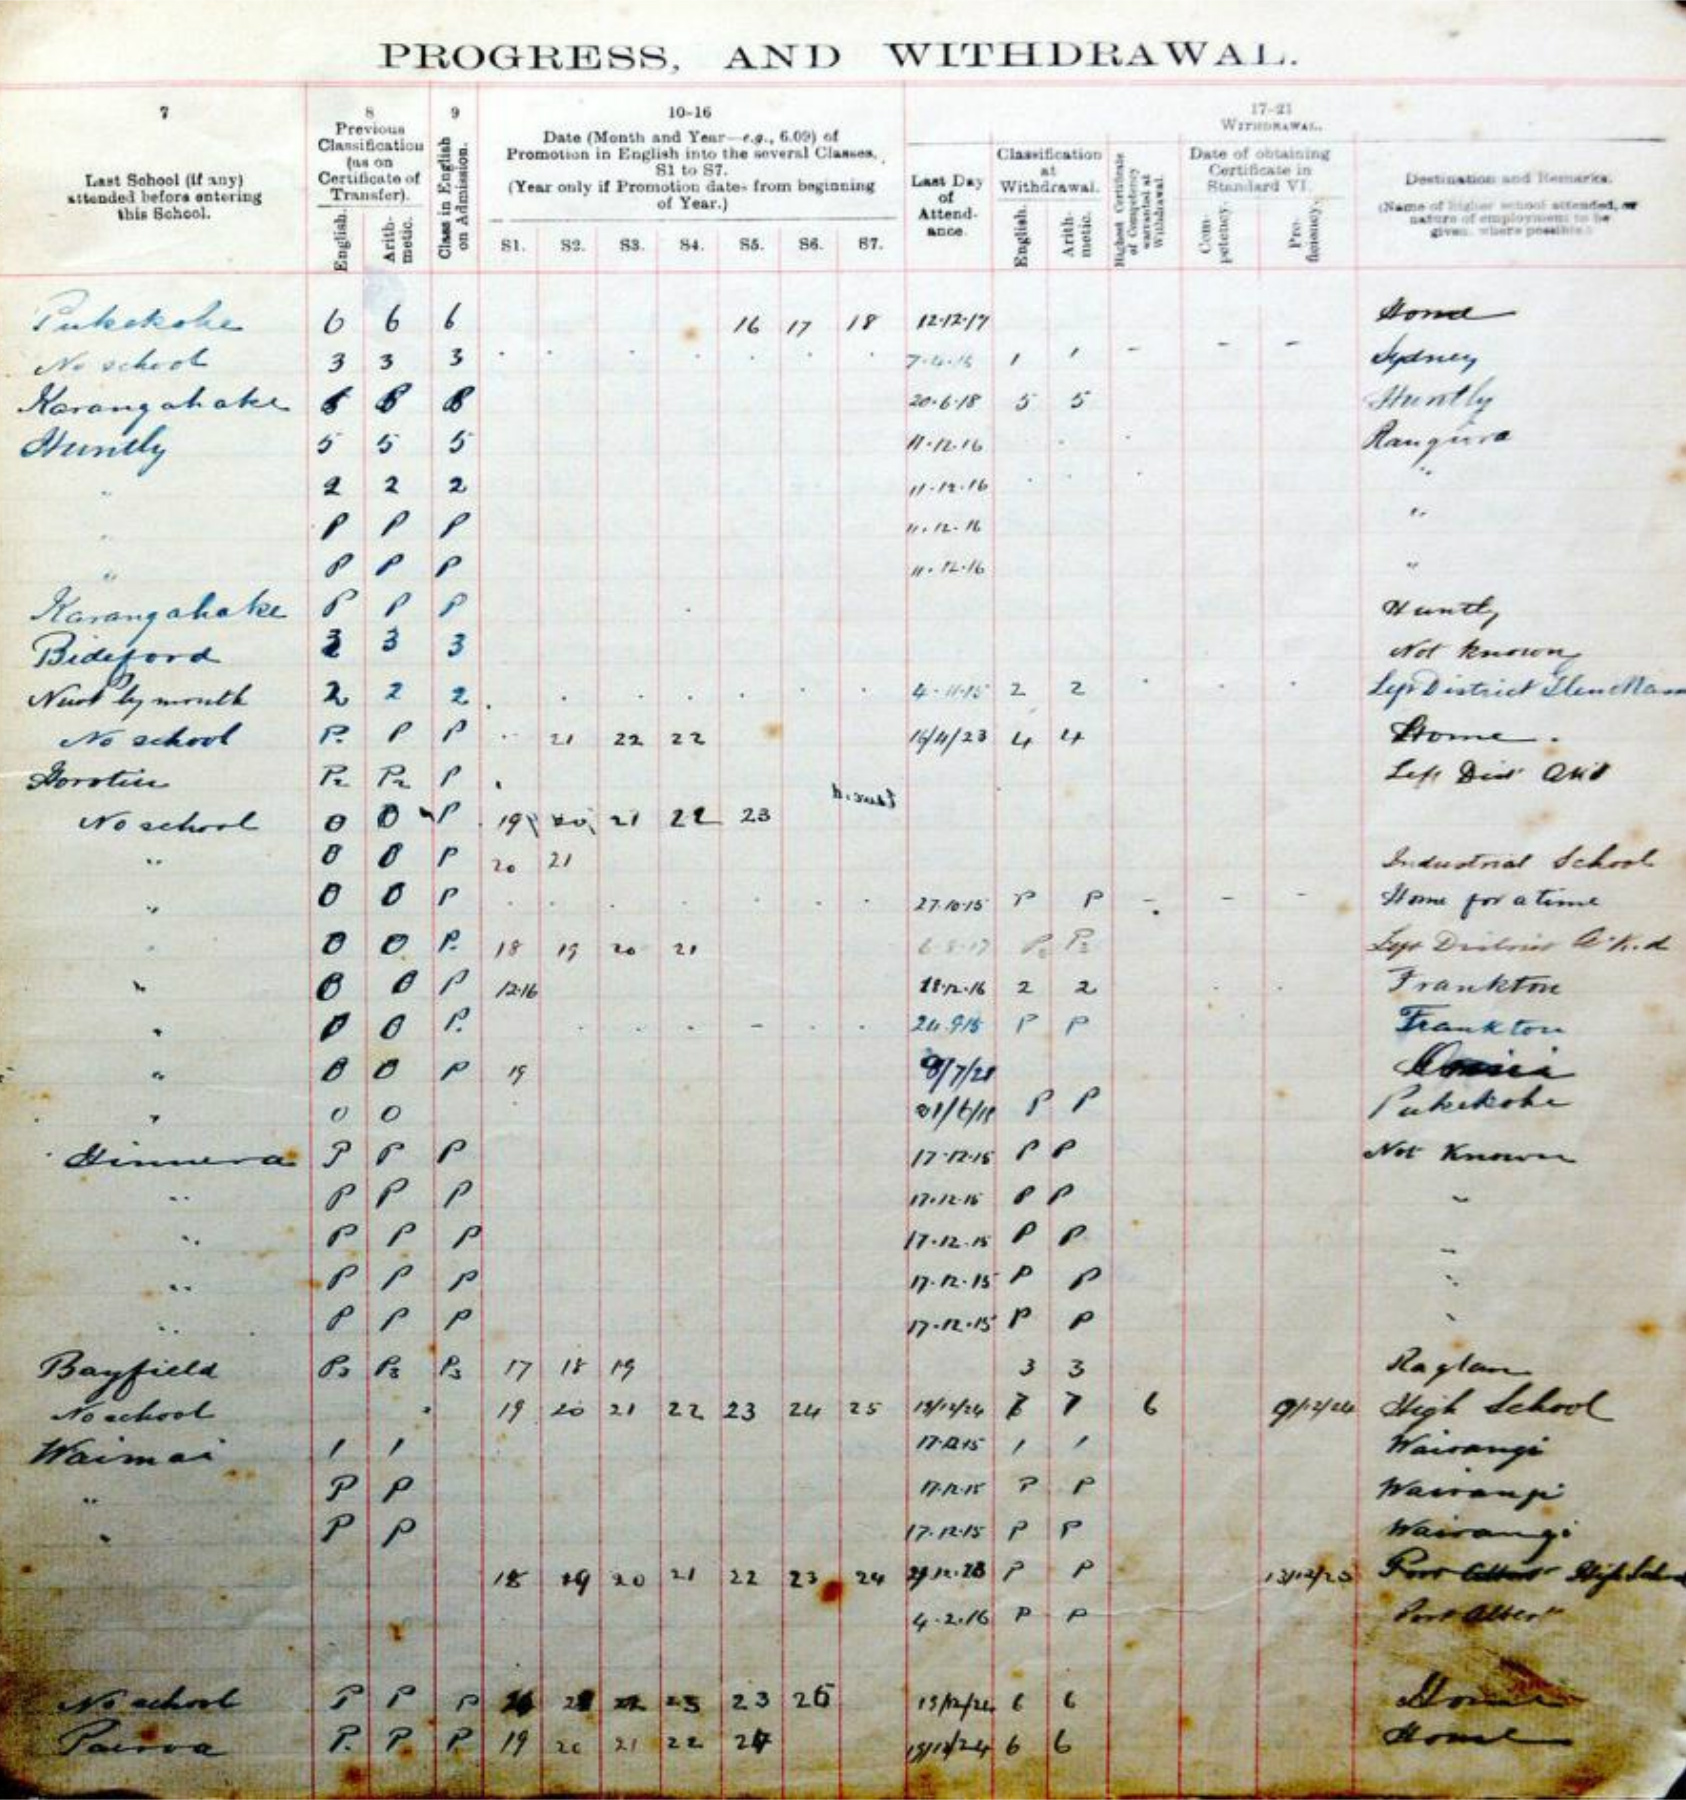 PROGRESS, AND WITHDRAWAL.
7 8 9 10-16 17-21
Last School (if any) attended before entering this School.
Previous Classification (as on Certificate of Transfer).
English. Arithmetic.
Class in English on Admission.
Date (Month and Year—e.g., 6.09) of Promotion in English into the several Classes, S1 to S7.
(Year only if Promotion dates from beginning of Year.)
S1. S2. S3. S4. S5. S6. S7.
WITHDRAWAL.
Last Day of Attendance.
Classification at Withdrawal.
English. Arithmetic.
Highest Certificate of Competency warranted at Withdrawal.
Date of obtaining Certificate in Standard VI.
Competency. Proficiency.
Destination and Remarks.
(Name of higher school attended, or nature of employment to be given where possible.)
Pukekohe 6 6 6 16 17 18 12.12.17
No school 3 3 3 1 1 Sydney
Karangahake 20.6.18 5 5 Huntly
Huntly 5 5 5 11.12.16
" 2 2 2 11.12.16 "
" P P P 11.12.16 "
" P P P 11.12.16 "
Karangahake P P P Huntly
Bideford 3 3 Not Known
New Plymouth 2 2 2 4.11.15 2 2 Left District
No school P. P P 21 22 22 16/4/23 4 4 Home.
P2 P2 P Left Dist
No school 0 0 P 19 20 21 22 23
" 0 0 P 20 21 Industrial School
" 0 0 P 27.10.15 P P Home for a time
" 0 0 P. 18 19 20 21 6.8.17 Left District
" 0 0 P 12.16 18.12.16 2 2 Frankton
" 0 0 P. 24.9.15 P P Frankton
" 0 0 P 19
" 0 0 P P Pukekohe
Hinuera P P P 17.12.15 P P Not Known
" P P P 17.12.15 P P "
" P P P 17.12.15 P P "
" P P P 17.12.15 P P "
" P P P 17.12.15 P P "
Bayfield P3 P3 P3 17 18 19 3 3 Raglan
No school 19 20 21 22 23 24 25 7 7 6 9/12/24 High School
Waimai 1 1 17.12.15 1 1 Wairangi
" P P 17.12.15 P P Wairangi
" P P 17.12.15 P P Wairangi
18 19 20 21 22 23 24 P P 13/12/23 High School
4.2.16 P P Port Albert
No school P P P 23 26 6 6 Home
Paeroa P. P P 19 20 21 22 6 6 Home